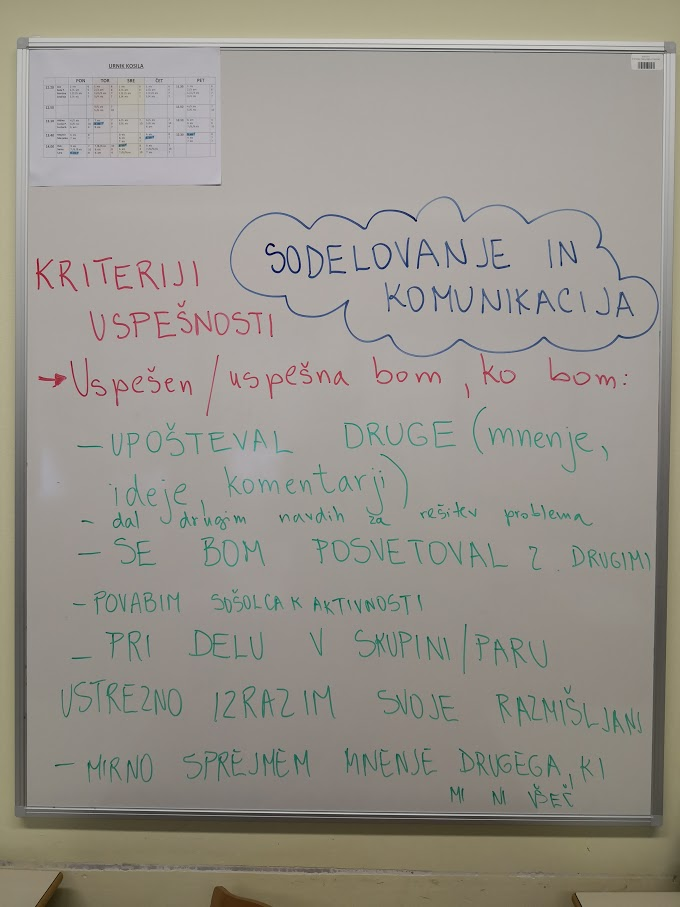 URNIK KOSILA
PON TOR SRE ČET PET
SODELOVANJE IN
KOMUNIKACIJA
KRITERIJI
USPEŠNOSTI
→ Uspešen/uspešna bom, ko bom:
– UPOŠTEVAL DRUGE (mnenje,
ideje, komentarji)
- dal drugim navdih za rešitev problema
– SE BOM POSVETOVAL Z DRUGIMI
- POVABIM SOŠOLCA K AKTIVNOSTI
– PRI DELU V SKUPINI/PARU
USTREZNO IZRAZIM SVOJE RAZMIŠLJANJ
– MIRNO SPREJMEM MNENJE DRUGEGA, KI
MI NI VŠEČ